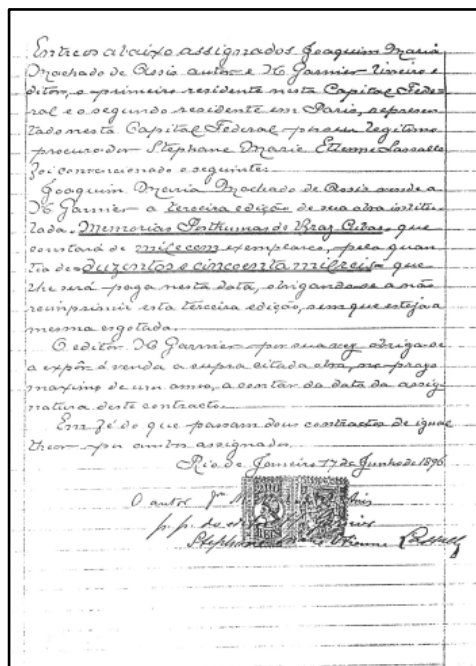 Entre os abaixo assignados Joaquim Maria
Machado de Assis autor e H Garnier livreiro e
ditor, o primeiro residente nesta Capital Fede-
ral e o segundo residente em Paris, represen
tado nesta Capital Federal por seu legitimo
procurador Stephane Marie Etienne Lassalle
foi convencionado o seguinte:
Joaquim Maria Machado de Assis vende a
H Garnier a terceira edição de sua obra intitu
lada Memorias Posthumas de Braz Cubas, que
constará de mil e cem exemplares, pela quan
tia de duzentos e cincoenta mil reis que
lhe será paga nesta data, obrigando-se a não
reimprimir esta terceira edição, sem que esteja a
mesma esgotada.
O editor H Garnier por sua vez obriga-se
a expôr á venda a supra citada obra, no prazo
maximo de um anno, a contar da data da assig
natura deste contracto.
Em fé do que passam dous contractos de igual
theor por ambos assignados.
Rio de Janeiro 17 de Junho de 1896
O autor
p. p. do
Stephane Etienne Lassalle